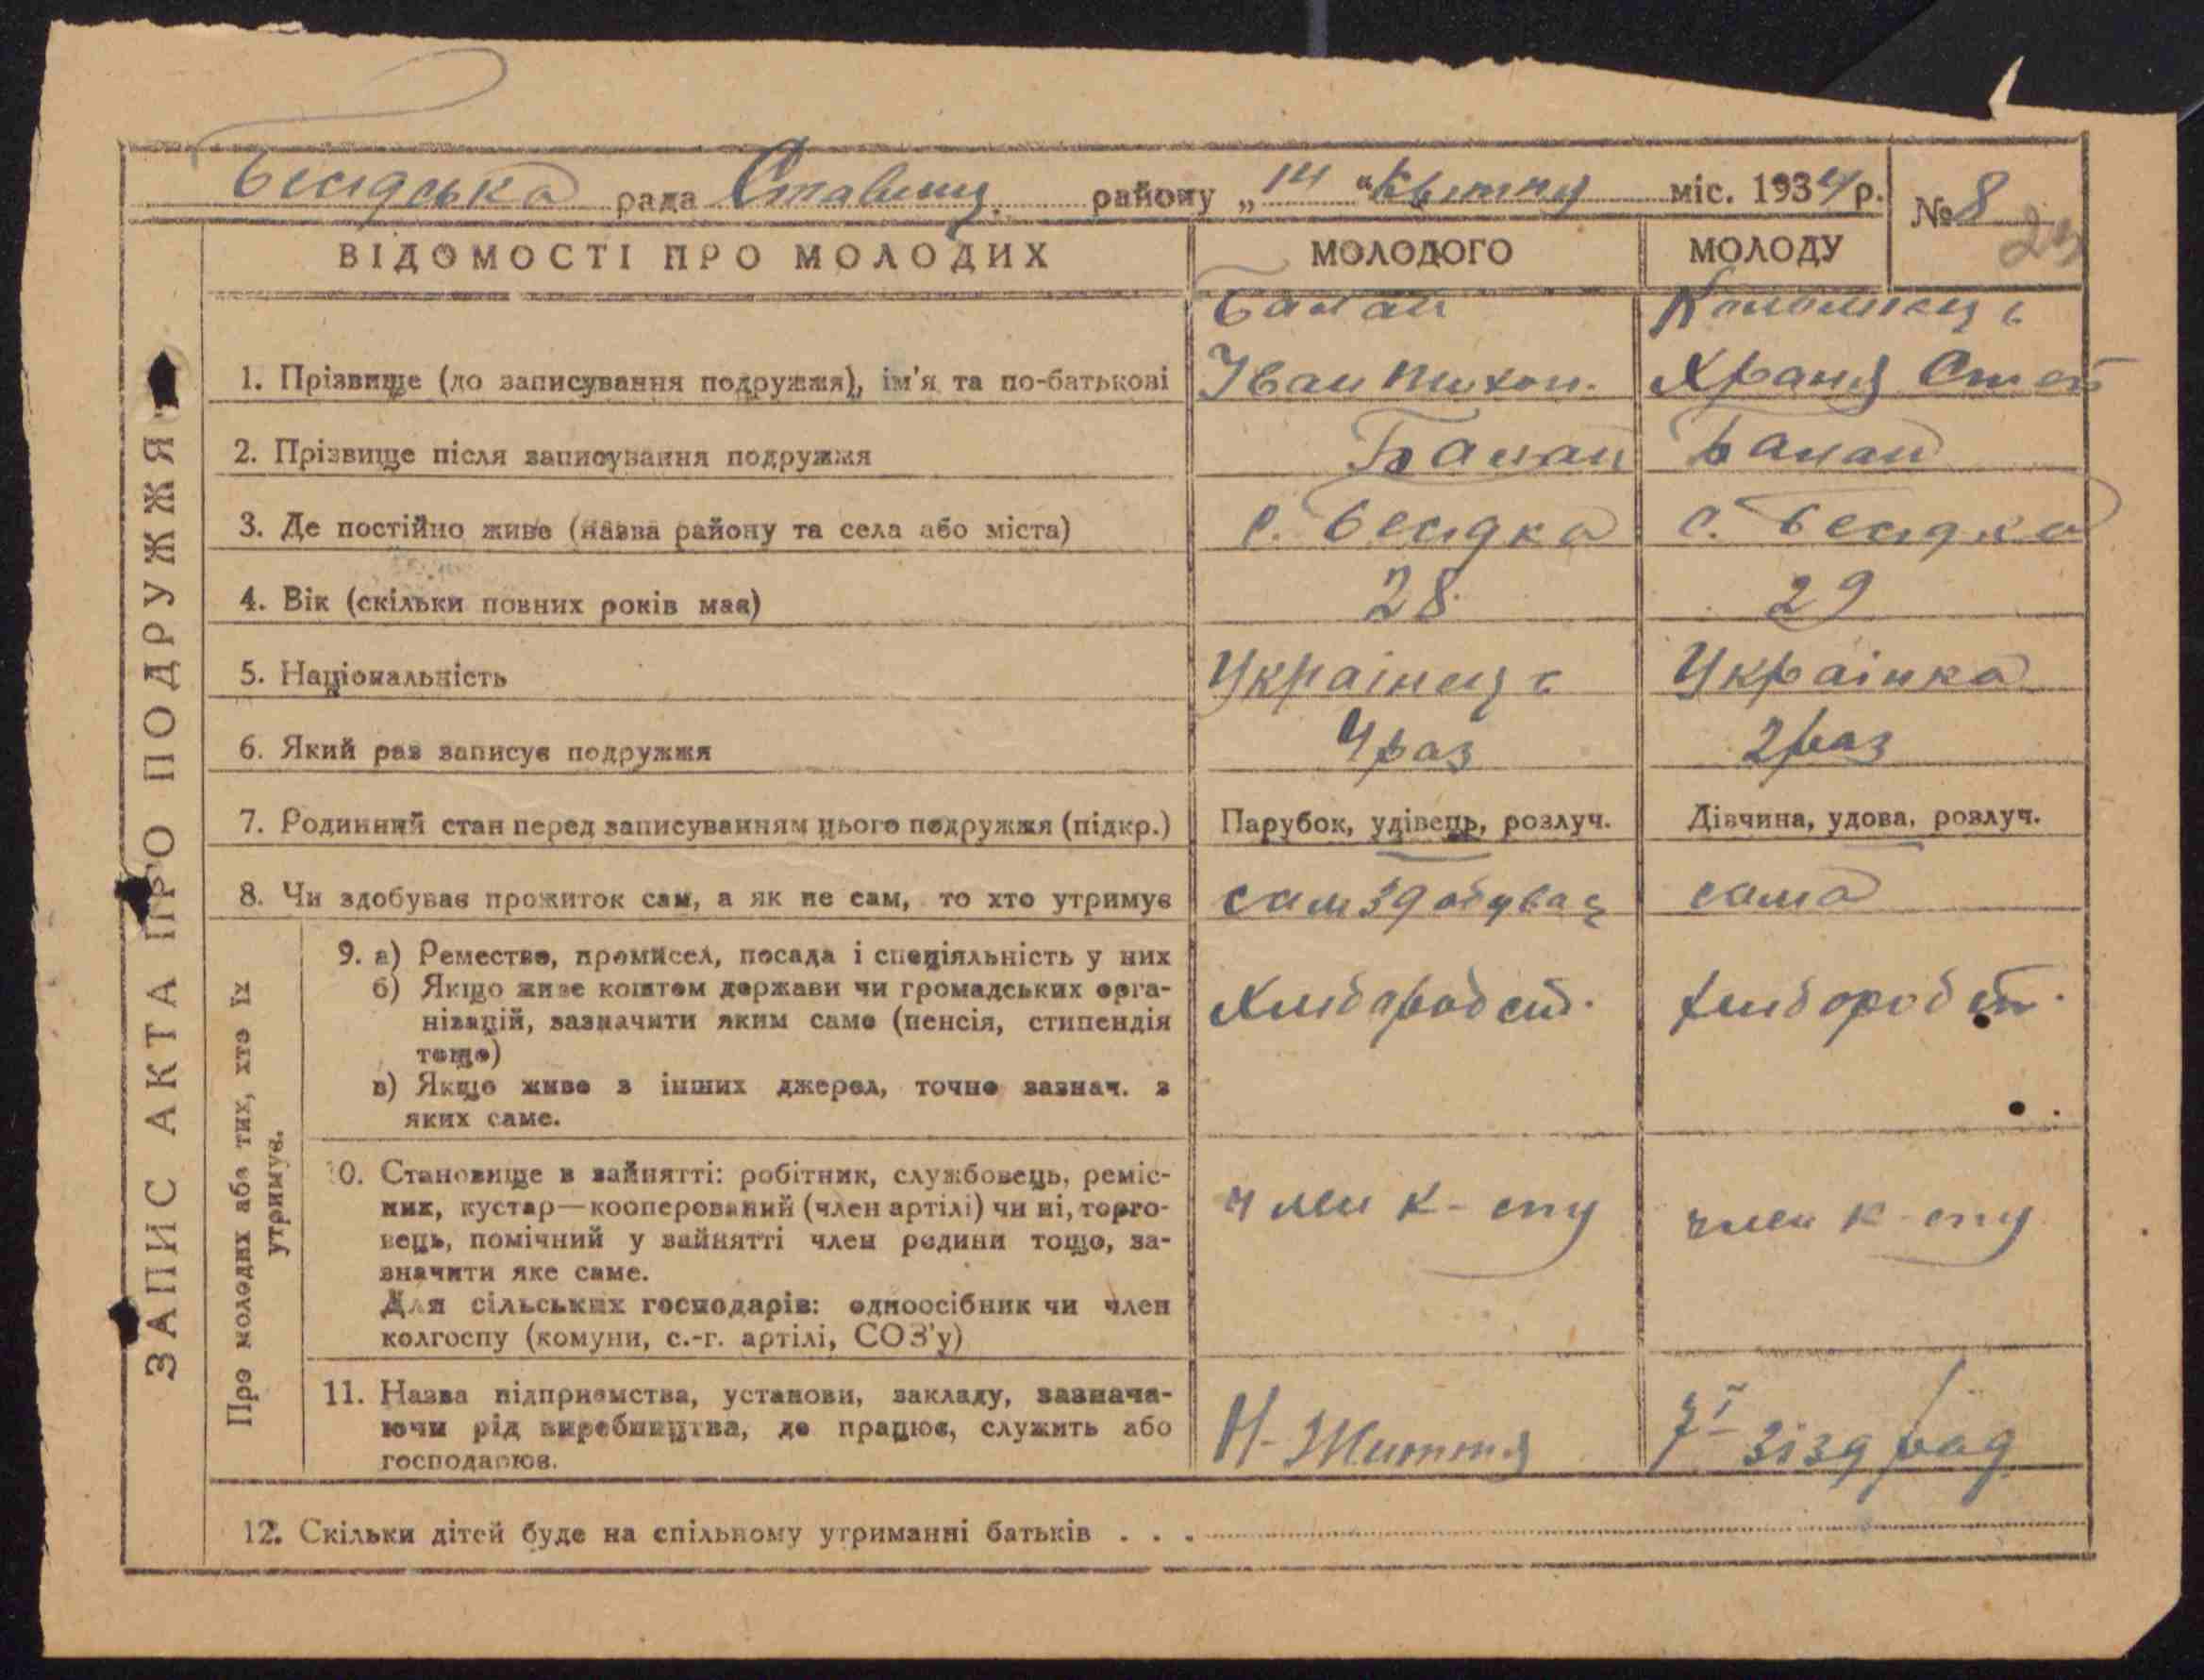 Бесідська рада Ставищ. району „14“ Квітня міс. 1934 р. № 8
ВІДОМОСТІ ПРО МОЛОДИХ МОЛОДОГО МОЛОДУ
ЗАПИС АКТА ПРО ПОДРУЖЖЯ
1. Прізвище (до записування подружжя), ім'я та по-батькові
Іван Тихон.
2. Прізвище після записування подружжя
3. Де постійно живе (назва району та села або міста) с. Бесідка с. Бесідка
4. Вік (скільки повних років має) 28 29
5. Національність Українець Українка
6. Який раз записує подружжя 4 раз 2 раз
7. Родинний стан перед записуванням цього подружжя (підкр.) Парубок, удівець, розлуч. Дівчина, удова, розлуч.
8. Чи здобуває прожиток сам, а як не сам, то хто утримує сам здобуває сама
Про молодих або тих, хто їх утримує.
9. а) Ремество, промисел, посада і спеціяльність у них
б) Якщо живе коштом держави чи громадських орга-
нізацій, зазначити яким саме (пенсія, стипендія
тощо)
в) Якщо живе з інших джерел, точно зазнач. з
яких саме.
10. Становище в зайнятті: робітник, службовець, реміс-
ник, кустар—кооперований (член артілі) чи ні, торго-
вець, помічний у зайнятті член родини тощо, за-
значити яке саме.
Для сільських господарів: одноосібник чи член
колгоспу (комуни, с.-г. артілі, СОЗ'у)
член к-спу член к-спу
11. Назва підприємства, установи, закладу, зазнача-
ючи рід виробництва, де працює, служить або
господарює.
Н-Життя зізд рад
12. Скільки дітей буде на спільному утриманні батьків . . .